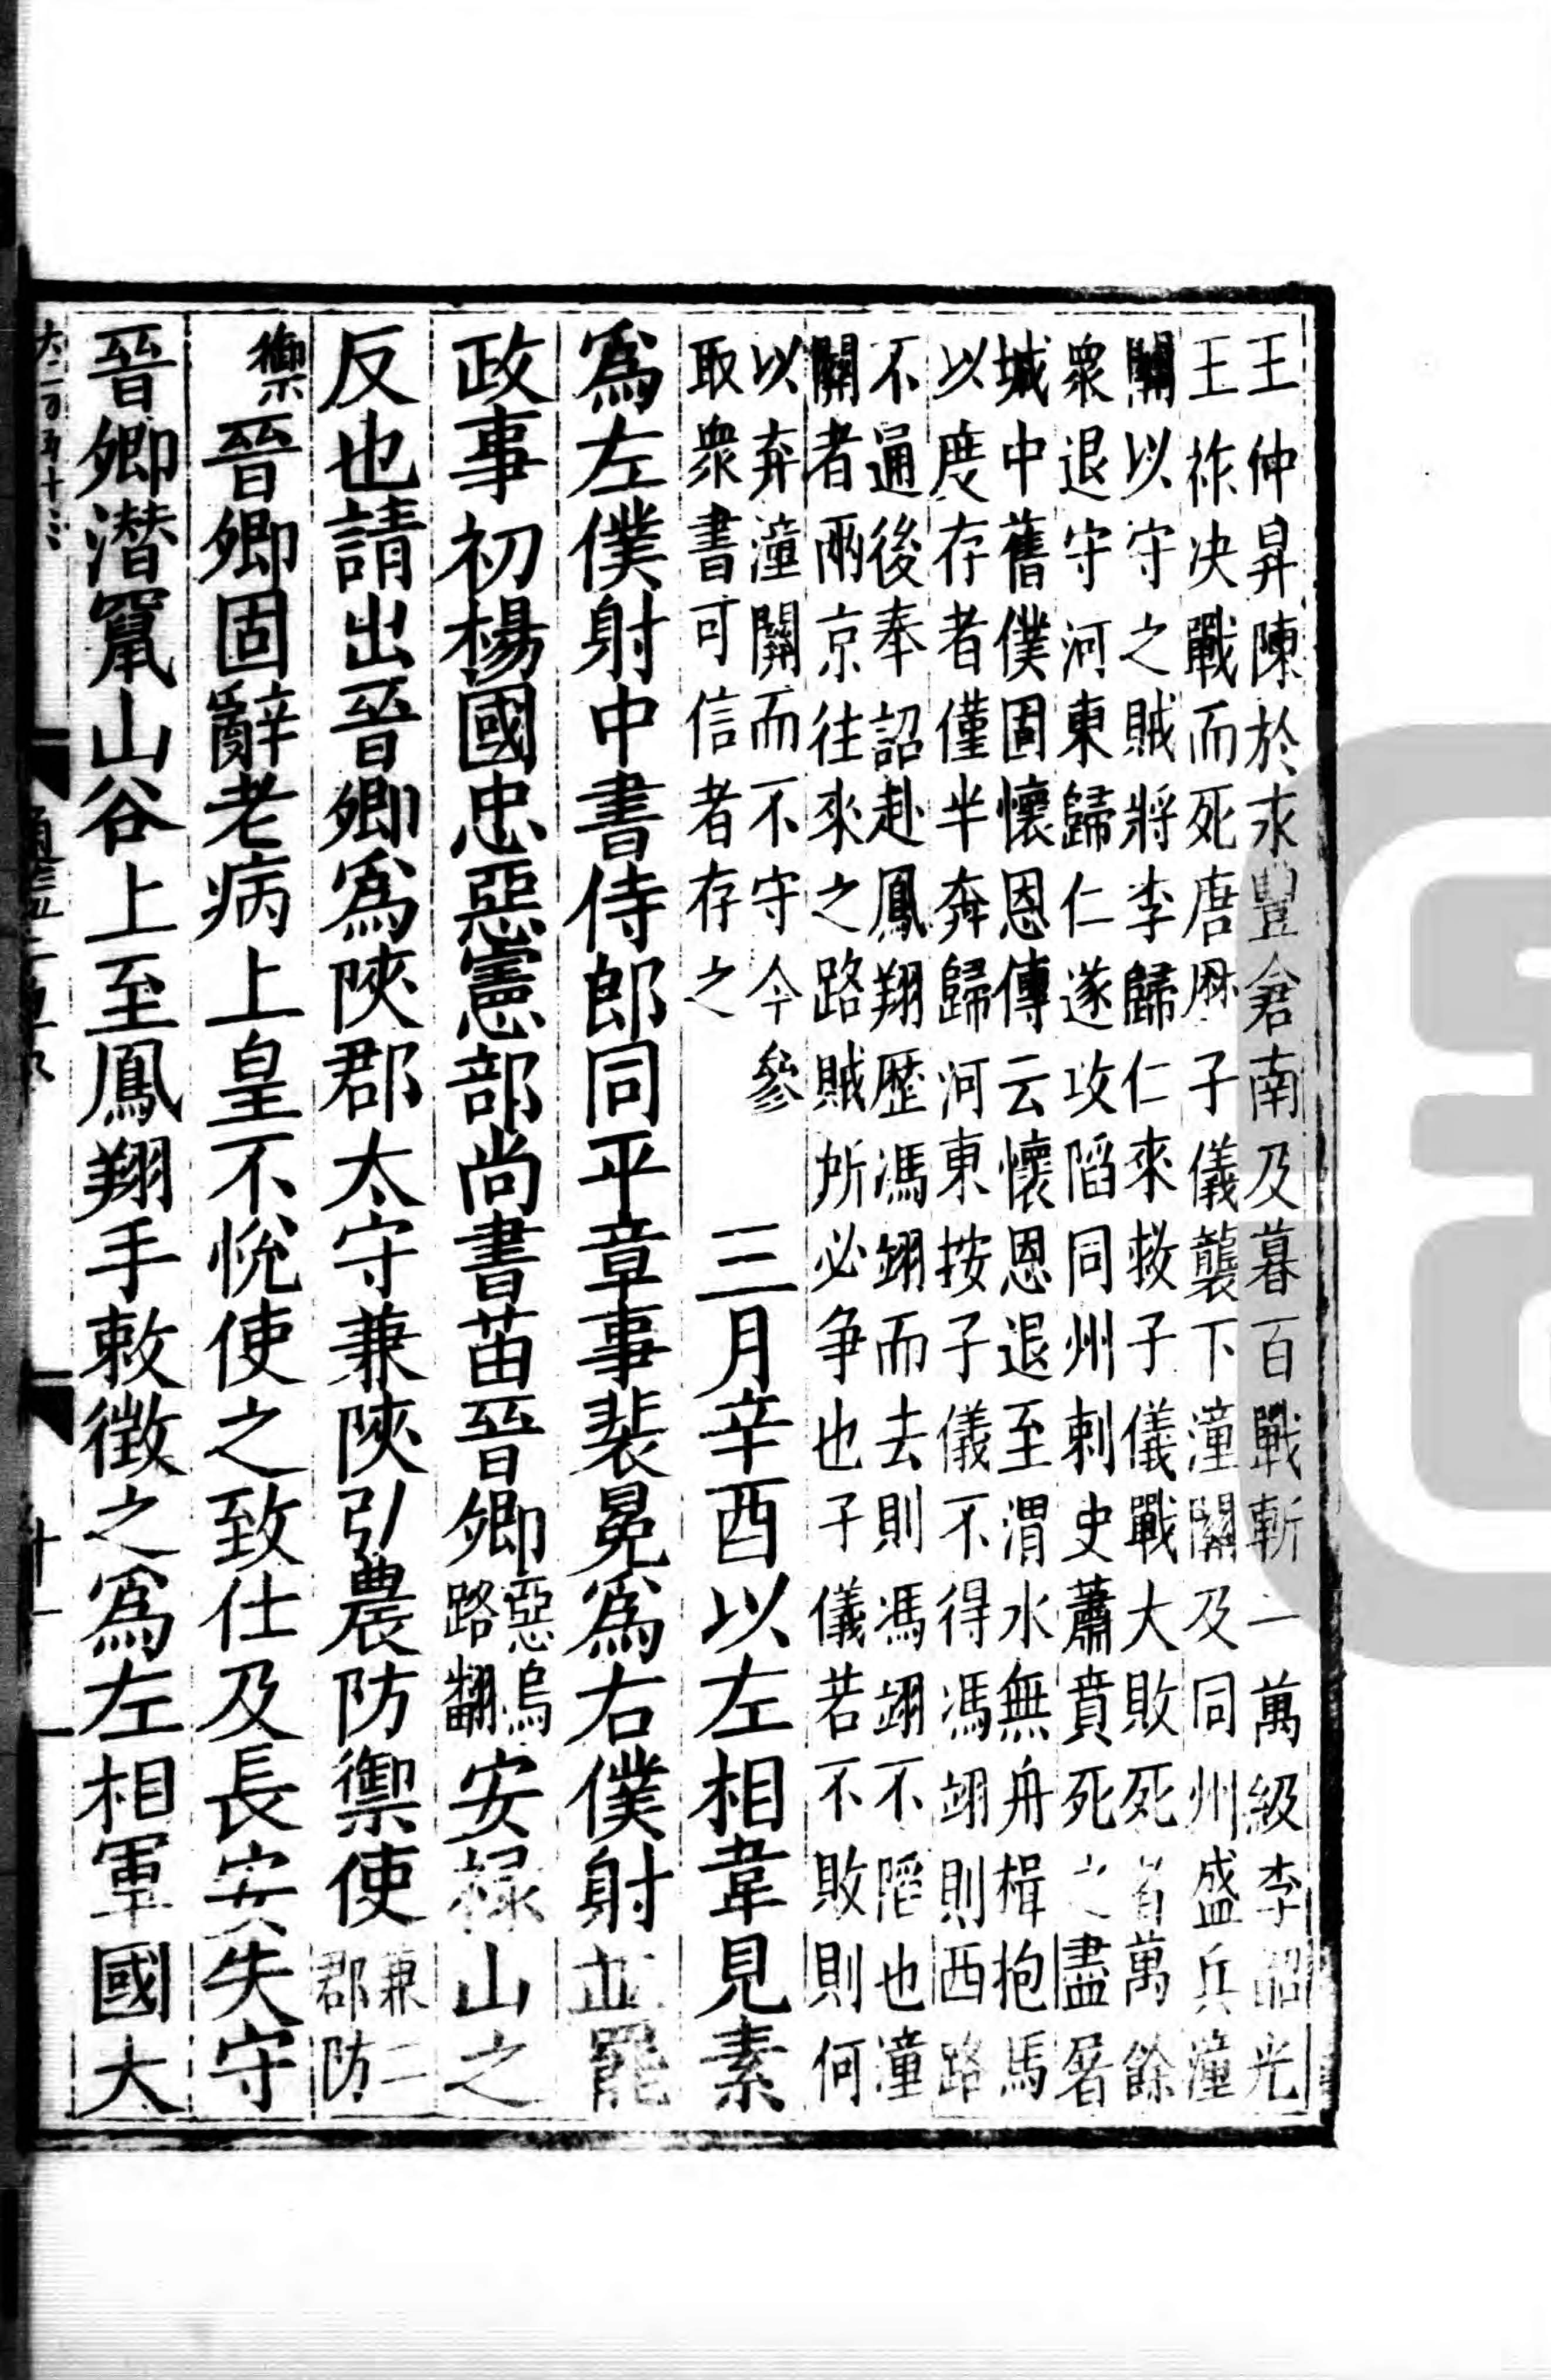 王仲昇陳於永豐倉南及暮百戰斬一萬級李韶光
王祚決戰而死唐曆子儀襲下潼關及同州盛兵潼
關以守之賊將李歸仁來救子儀戰大敗死者萬餘
衆退守河東歸仁遂攻䧟同州刺史蕭賁死之盡屠
城中舊僕固懷恩傳云懷恩退至渭水無舟楫抱馬
以度存者僅半奔歸河東按子儀不得馮翊則西路
不通後奉詔赴鳳翔歷馮翊而去則馮翊不䧟也潼
關者兩京往來之路賊所必争也子儀若不敗則何
以弃潼關而不守今參
取衆書可信者存之
三月辛酉以左相韋見素
爲左僕射中書侍郎同平章事裴冕爲右僕射並罷
政事初楊國忠惡憲部尚書苗晉卿惡烏路翻安祿山之
反也請出晉卿爲陝郡太守兼陝弘農防禦使兼二郡防
禦晉卿固辭老病上皇不悅使之致仕及長安失守
晉卿潜竄山谷上至鳳翔手敕徵之爲左相軍國大